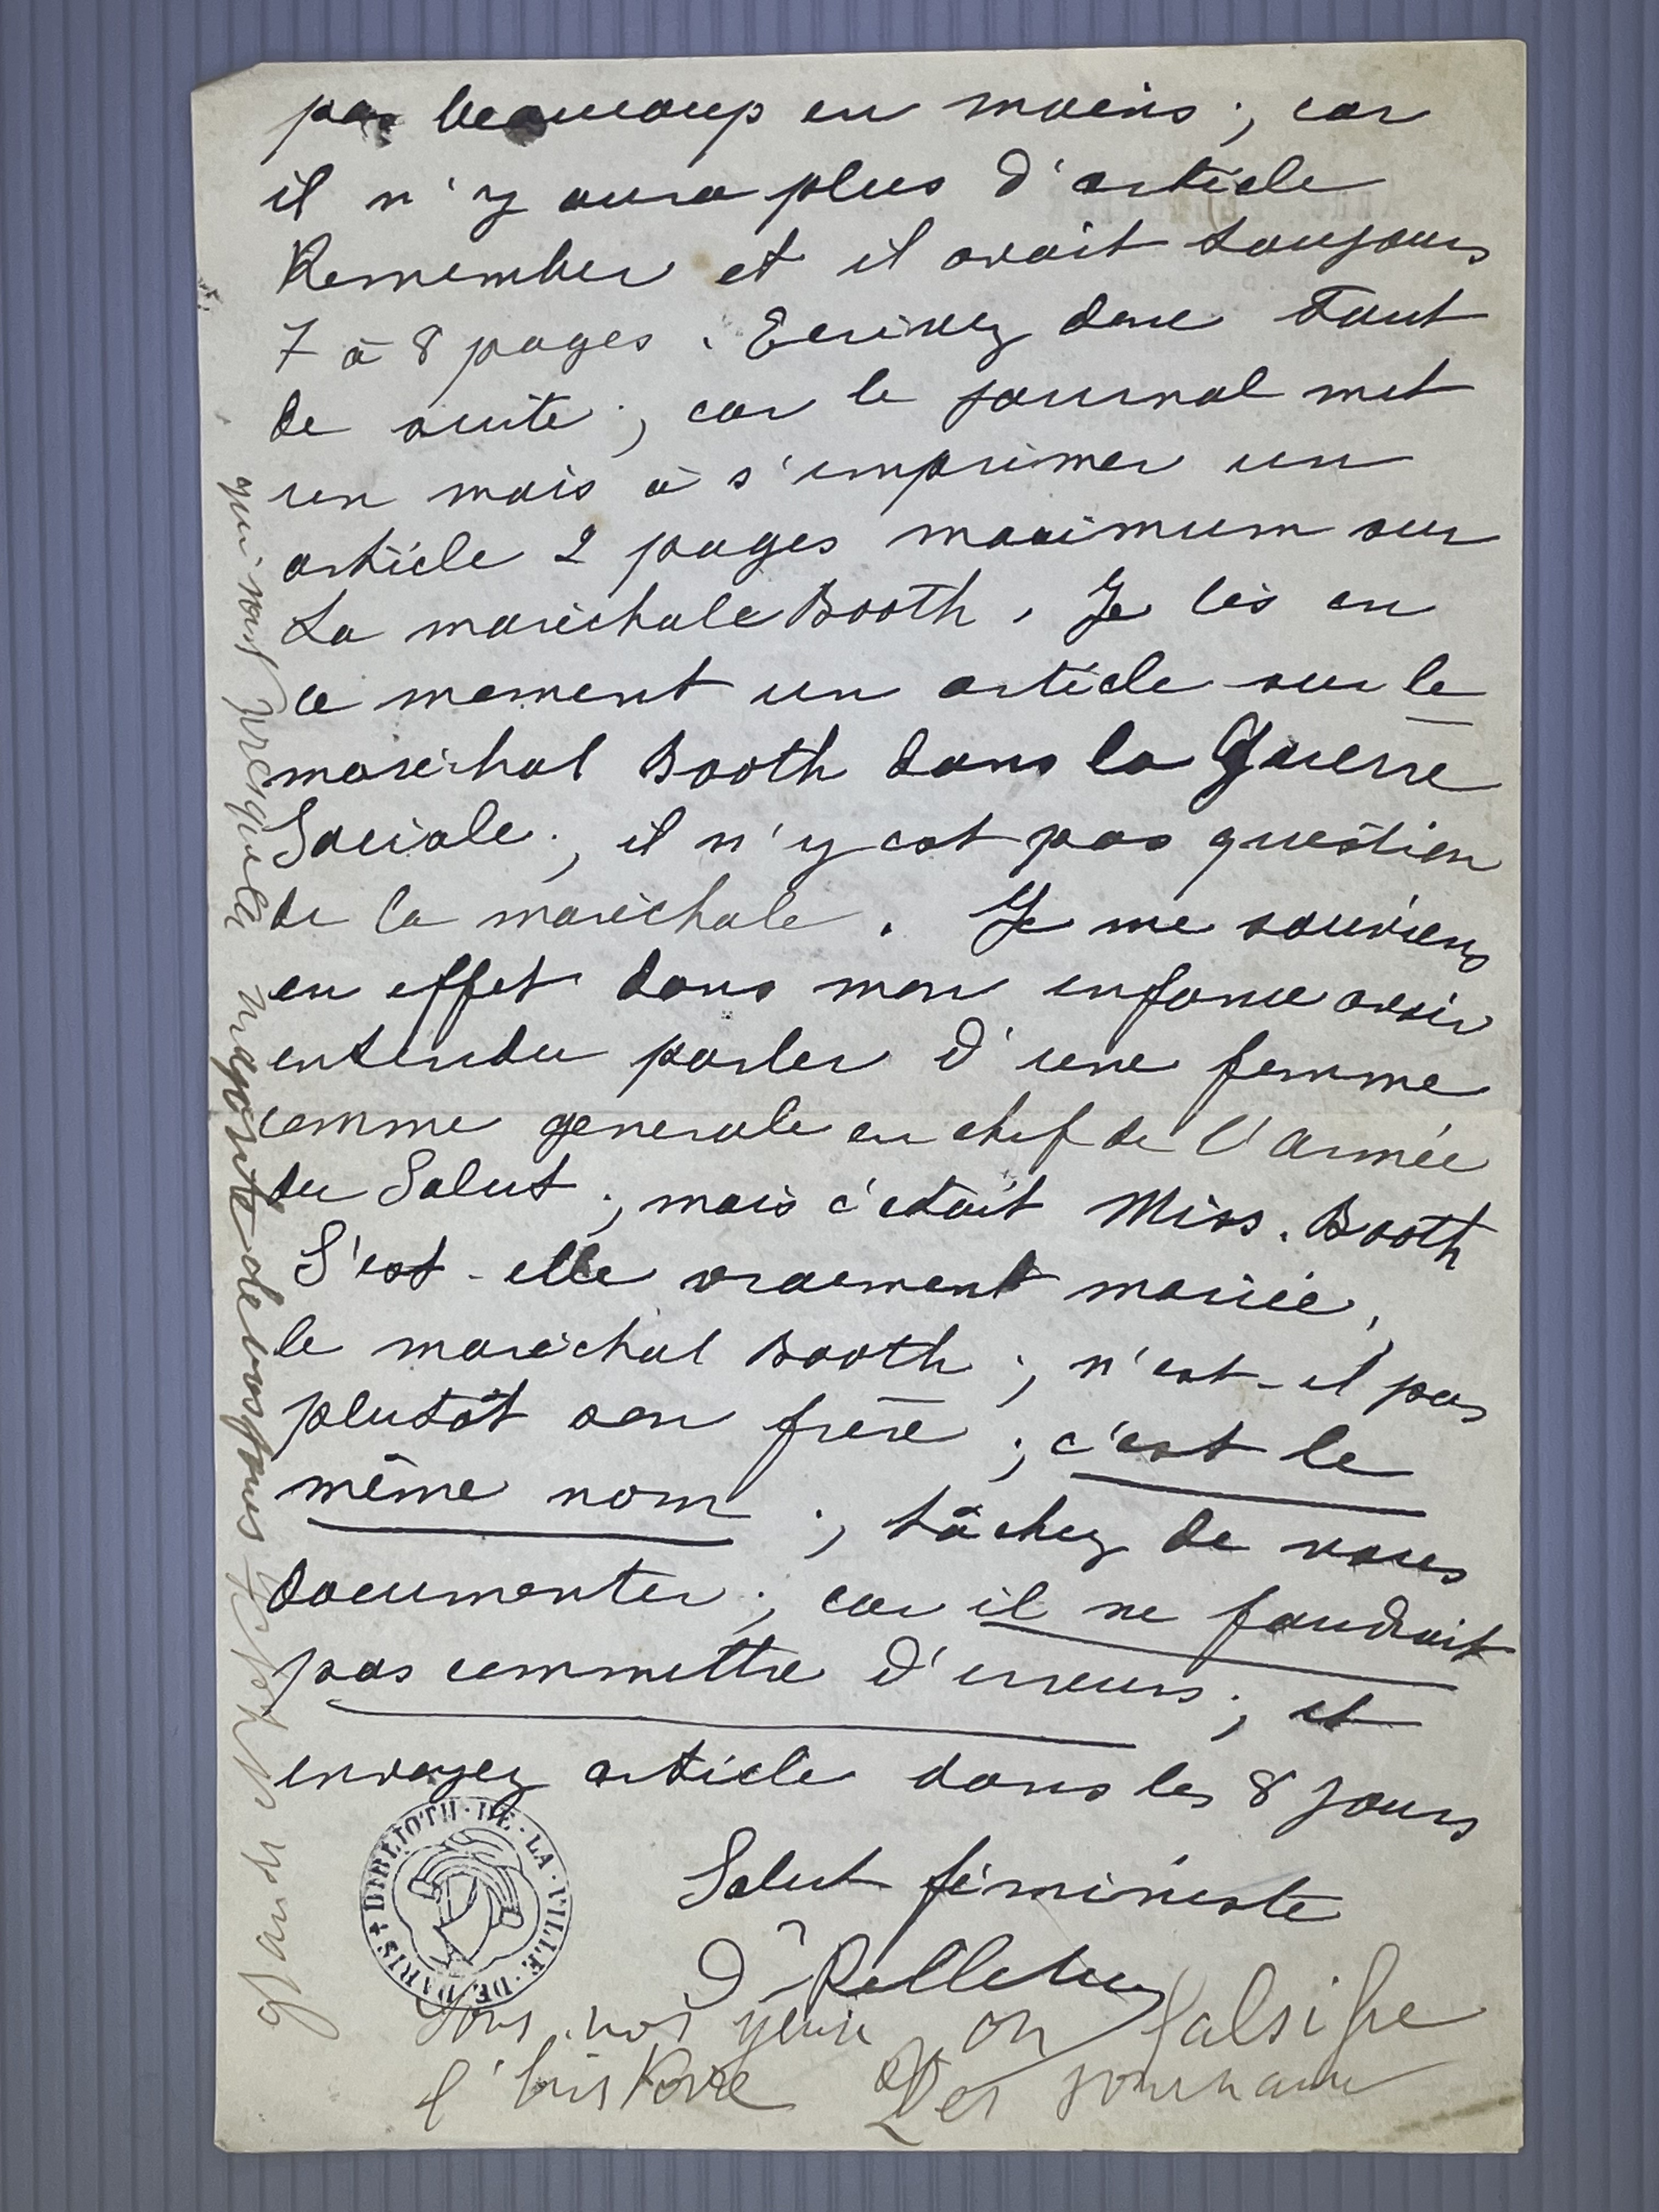 pas beaucoup en moins ; car
il n'y aura plus d'article
Remember et il avait toujours
7 à 8 pages. Ecrivez donc tout
de suite ; car le journal met
un mois à s'imprimer un
article 2 pages maximum sur
La maréchale Booth. Je lis en
ce moment un article sur le
maréchal Booth dans la Guerre
Sociale ; il n'y est pas question
de la maréchale. Je me souviens
en effet dans mon enfance avoir
entendu parler d'une femme
comme generale en chef de l'armée
du Salut ; mais c'etait Miss. Booth
S'est-elle vraement mariée,
le maréchal Booth ; n'est-il pas
plutôt son frère ; c'est le
même nom ; tâchez de vous
documenter ; car il ne faudrait
pas commettre d'erreurs ; et
envoyez article dans les 8 jours
Salut féministe
Dr Pelletier
BIBLIOTH · DE · LA · VILLE · DE · PARIS
Sous nos yeux on falsifie
l'histoire Les journaux
qui sont presque la de vos jours